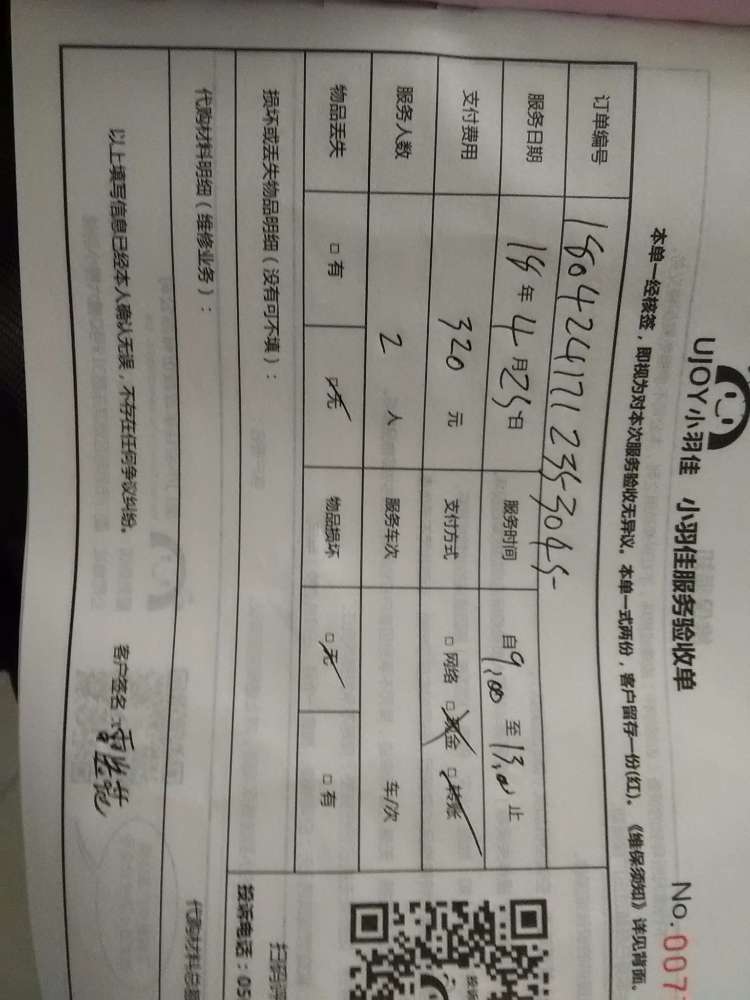 UJOY小羽佳 小羽佳服务验收单 No.007
本单一经核签，即视为对本次服务验收无异议。本单一式两份，客户留存一份(红)。《维保须知》详见背面。
订单编号 18042417123S3045
服务日期 18年4月25日 服务时间 自9:00至13:00止
支付费用 320元 支付方式 □网络 □现金 □转账
服务人数 2人 服务车次 车/次
物品丢失 □有 □无 物品损坏 □无 □有
损坏或丢失物品明细（没有可不填）：
代购材料明细（维修业务）： 代购材料总
以上填写信息已经本人确认无误，不存在任何争议纠纷。 客户签名：
扫码评
投诉电话：05